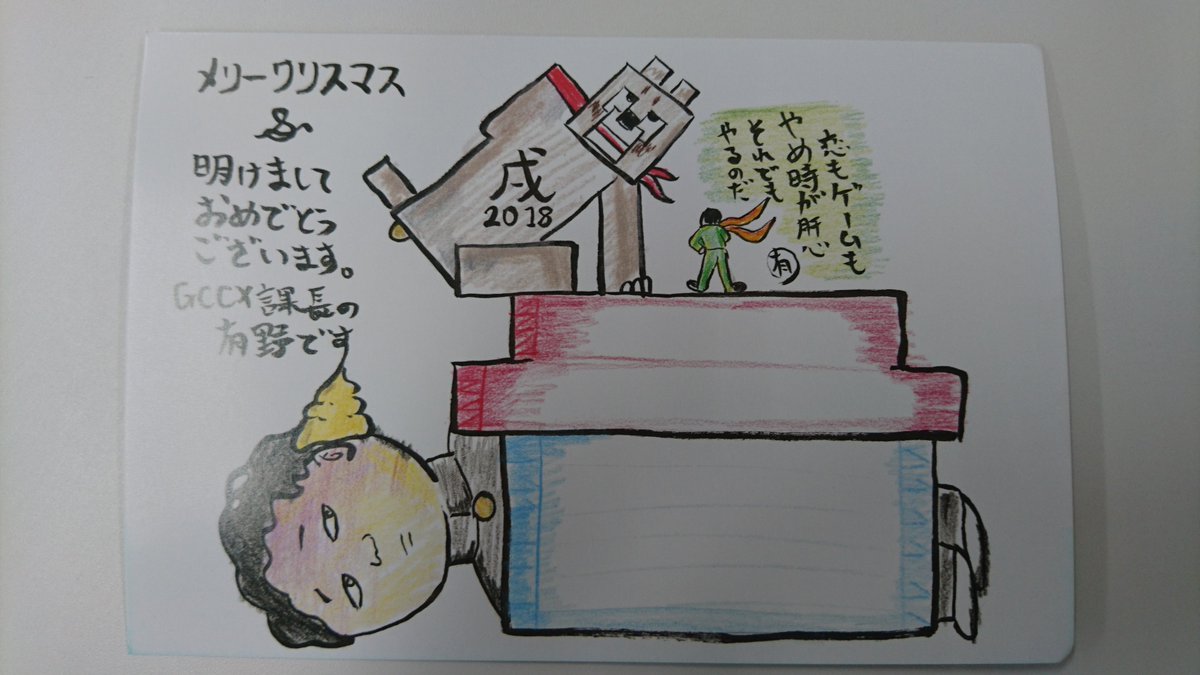 メリークリスマス
&
明けまして
おめでとう
ございます。
GCCX課長の
有野です
戌
2018
恋もゲームも
やめ時が肝心
それでも
やるのだ
有